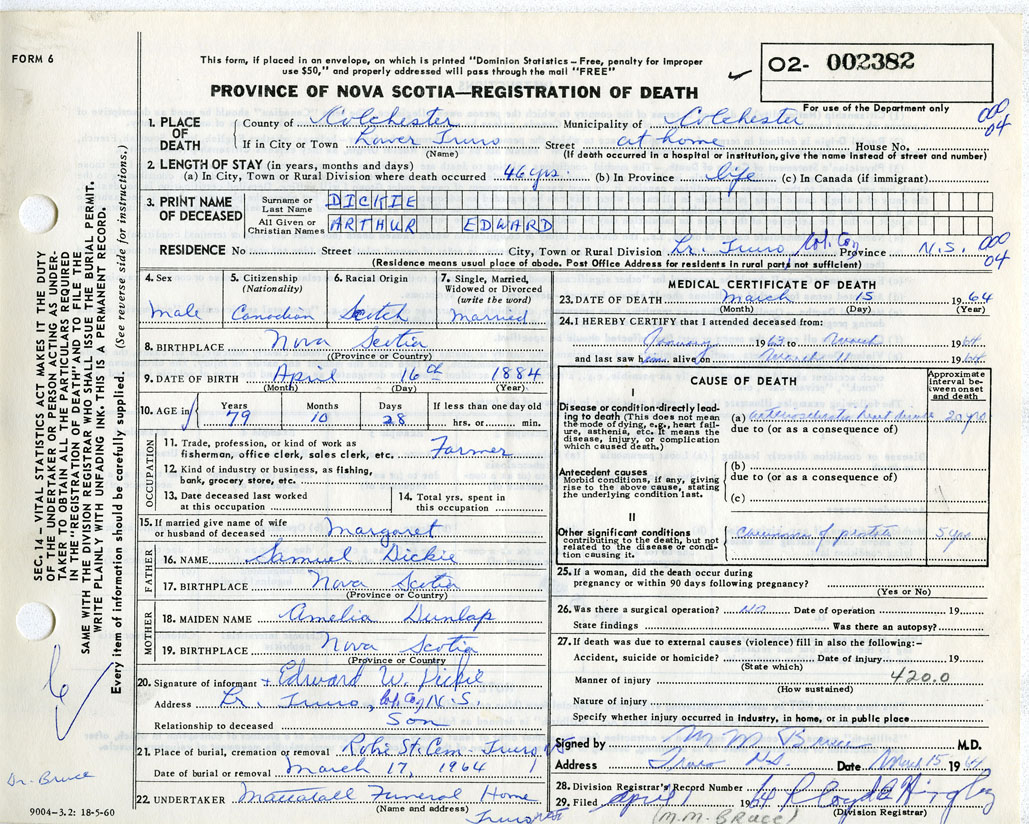 FORM 6
This form, if placed in an envelope, on which is printed "Dominion Statistics – Free, penalty for improper
use $50," and properly addressed will pass through the mail "FREE"
O2- 002382
PROVINCE OF NOVA SCOTIA—REGISTRATION OF DEATH
For use of the Department only
1. PLACE OF DEATH
County of Colchester Municipality of Colchester 000
If in City or Town Lower Truro Street at home House No. 04
(Name) (If death occurred in a hospital or institution, give the name instead of street and number)
2. LENGTH OF STAY (in years, months and days)
(a) In City, Town or Rural Division where death occurred 46 yrs. (b) In Province life (c) In Canada (if immigrant)
3. PRINT NAME OF DECEASED
Surname or Last Name DICKIE
All Given or Christian Names ARTHUR EDWARD
RESIDENCE No Street City, Town or Rural Division Lr. Truro Col. Co. Province N.S. 000
(Residence means usual place of abode. Post Office Address for residents in rural parts not sufficient) 04
4. Sex
Male
5. Citizenship
(Nationality)
Canadian
6. Racial Origin
Scotch
7. Single, Married, Widowed or Divorced
(write the word)
Married
8. BIRTHPLACE Nova Scotia
(Province or Country)
9. DATE OF BIRTH April 16th 1884
(Month) (Day) (Year)
10. AGE in
Years Months Days If less than one day old
79 10 28 hrs. or min.
OCCUPATION
11. Trade, profession, or kind of work as
fisherman, office clerk, sales clerk, etc. Farmer
12. Kind of industry or business, as fishing,
bank, grocery store, etc.
13. Date deceased last worked
at this occupation
14. Total yrs. spent in
this occupation
15. If married give name of wife
or husband of deceased Margaret
FATHER
16. NAME Samuel Dickie
17. BIRTHPLACE Nova Scotia
(Province or Country)
MOTHER
18. MAIDEN NAME Amelia Dunlap
19. BIRTHPLACE Nova Scotia
(Province or Country)
20. Signature of informant Edward W. Dickie
Address Lr. Truro, Col. Co. N.S.
Relationship to deceased Son
21. Place of burial, cremation or removal Robie St. Cem. Truro NS
Date of burial or removal March 17, 1964
22. UNDERTAKER Mattatall Funeral Home
(Name and address) Truro NS
MEDICAL CERTIFICATE OF DEATH
23. DATE OF DEATH March 15 1964
(Month) (Day) (Year)
24. I HEREBY CERTIFY that I attended deceased from:
January 1963 to March 1964
and last saw him alive on March 11 1964
CAUSE OF DEATH
Approximate interval between onset and death
I
Disease or condition directly lead-
ing to death (This does not mean
the mode of dying, e.g., heart fail-
ure, asthenia, etc. It means the
disease, injury, or complication
which caused death.)
(a) arteriosclerotic heart disease 20 yrs
due to (or as a consequence of)
Antecedent causes
Morbid conditions, if any, giving
rise to the above cause, stating
the underlying condition last.
(b)
due to (or as a consequence of)
(c)
II
Other significant conditions
contributing to the death, but not
related to the disease or condi-
tion causing it.
carcinoma of prostate 5 yrs
25. If a woman, did the death occur during
pregnancy or within 90 days following pregnancy?
(Yes or No)
26. Was there a surgical operation? No Date of operation 19
State findings Was there an autopsy?
27. If death was due to external causes (violence) fill in also the following:–
Accident, suicide or homicide? Date of injury 19
(State which)
Manner of injury 420.0
(How sustained)
Nature of injury
Specify whether injury occurred in industry, in home, or in public place
Signed by M M Bruce M.D.
Address Truro N.S. Date March 15 1964
28. Division Registrar's Record Number
29. Filed April 1 1964 Lloyd Hingley
(M.M. BRUCE) (Division Registrar)
SEC. 14 – VITAL STATISTICS ACT MAKES IT THE DUTY
OF THE UNDERTAKER OR PERSON ACTING AS UNDER-
TAKER TO OBTAIN ALL THE PARTICULARS REQUIRED
IN THE "REGISTRATION OF DEATH" AND TO FILE THE
SAME WITH THE DIVISION REGISTRAR WHO SHALL ISSUE THE BURIAL PERMIT.
WRITE PLAINLY WITH UNFADING INK. THIS IS A PERMANENT RECORD.
Every item of information should be carefully supplied. (See reverse side for instructions.)
6
Dr. Bruce
9004–3.2: 18-5-60